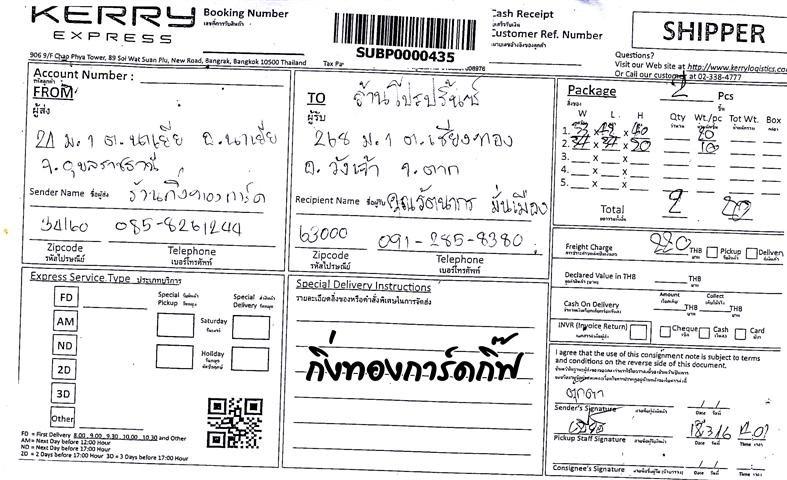 KERRY
EXPRESS
Booking Number
เลขที่การรับสินค้า
SUBP0000435
Cash Receipt
ใบเสร็จรับเงิน
Customer Ref. Number
หมายเลขอ้างอิงของลูกค้า
SHIPPER
906 9/F Chao Phya Tower, 89 Soi Wat Suan Plu, New Road, Bangrak, Bangkok 10500 Thailand
Questions?
Visit our Web site at http://www.kerrylogistics.com
Or Call our customer at 02-338-4777
Account Number :
รหัสลูกค้า
FROM
ผู้ส่ง
21 ม.1 ต.นาเยีย อ.นาเยีย
จ.อุบลราชธานี
Sender Name ชื่อผู้ส่ง ร้านกิ่งทองการ์ด
34160 085-8261244
Zipcode Telephone
รหัสไปรษณีย์ เบอร์โทรศัพท์
TO ร้านโปรปริ้นซ์
ผู้รับ
268 ม.1 ต.เชียงทอง
อ.วังเจ้า จ.ตาก
Recipient Name ชื่อผู้รับ คุณรัตนากร มั่นเมือง
63000 091-285-8380
Zipcode Telephone
รหัสไปรษณีย์ เบอร์โทรศัพท์
Package 2 Pcs
สิ่งของ ชิ้น
W L H Qty Wt./pc Tot Wt. Box
1.
2.
3. x x
4. x x
5. x x
Total 2 20
Freight Charge 220 THB Pickup Delivery
Declared Value in THB THB
Amount Collect
Cash On Delivery THB THB
INVR (Invoice Return) Cheque Cash Card
Express Service Type ประเภทบริการ
FD
AM
ND
2D
3D
Other
Special Pickup
Special Delivery
Saturday
วันเสาร์
Holiday
วันหยุด
FD = First Delivery 8.00 , 9.00 , 9.30 , 10.00 , 10.30 and Other
AM= Next Day before 12:00 Hour
ND = Next Day before 17:00 Hour
2D = 2 Days before 17:00 Hour 3D = 3 Days before 17:00 Hour
Special Delivery Instructions
รายละเอียดสิ่งของหรือคำสั่งพิเศษในการจัดส่ง
กิ่งทองการ์ดกิ๊ฟ
I agree that the use of this consignment note is subject to terms
and conditions on the reverse side of this document.
ตุกตา
Sender's Signature ลายเซ็นผู้ส่งสินค้า Date วันที่
Pickup Staff Signature Date วันที่ Time เวลา
Consignee's Signature Date วันที่ Time เวลา